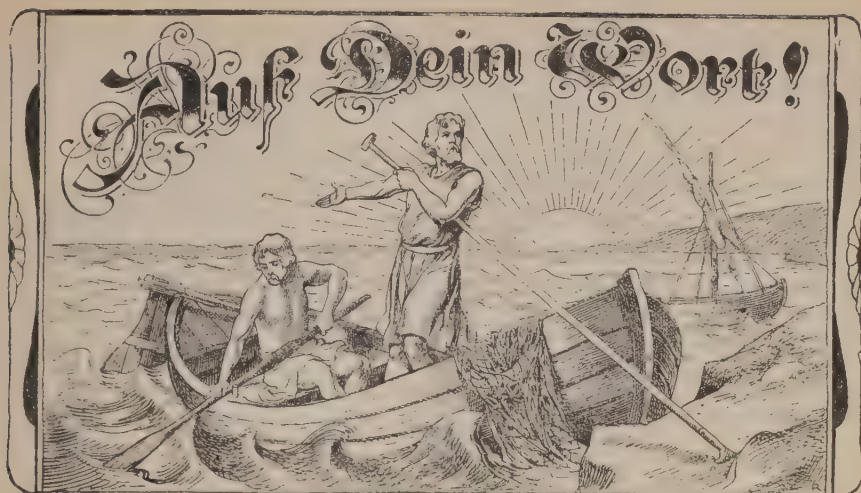 Auf Dein Wort!